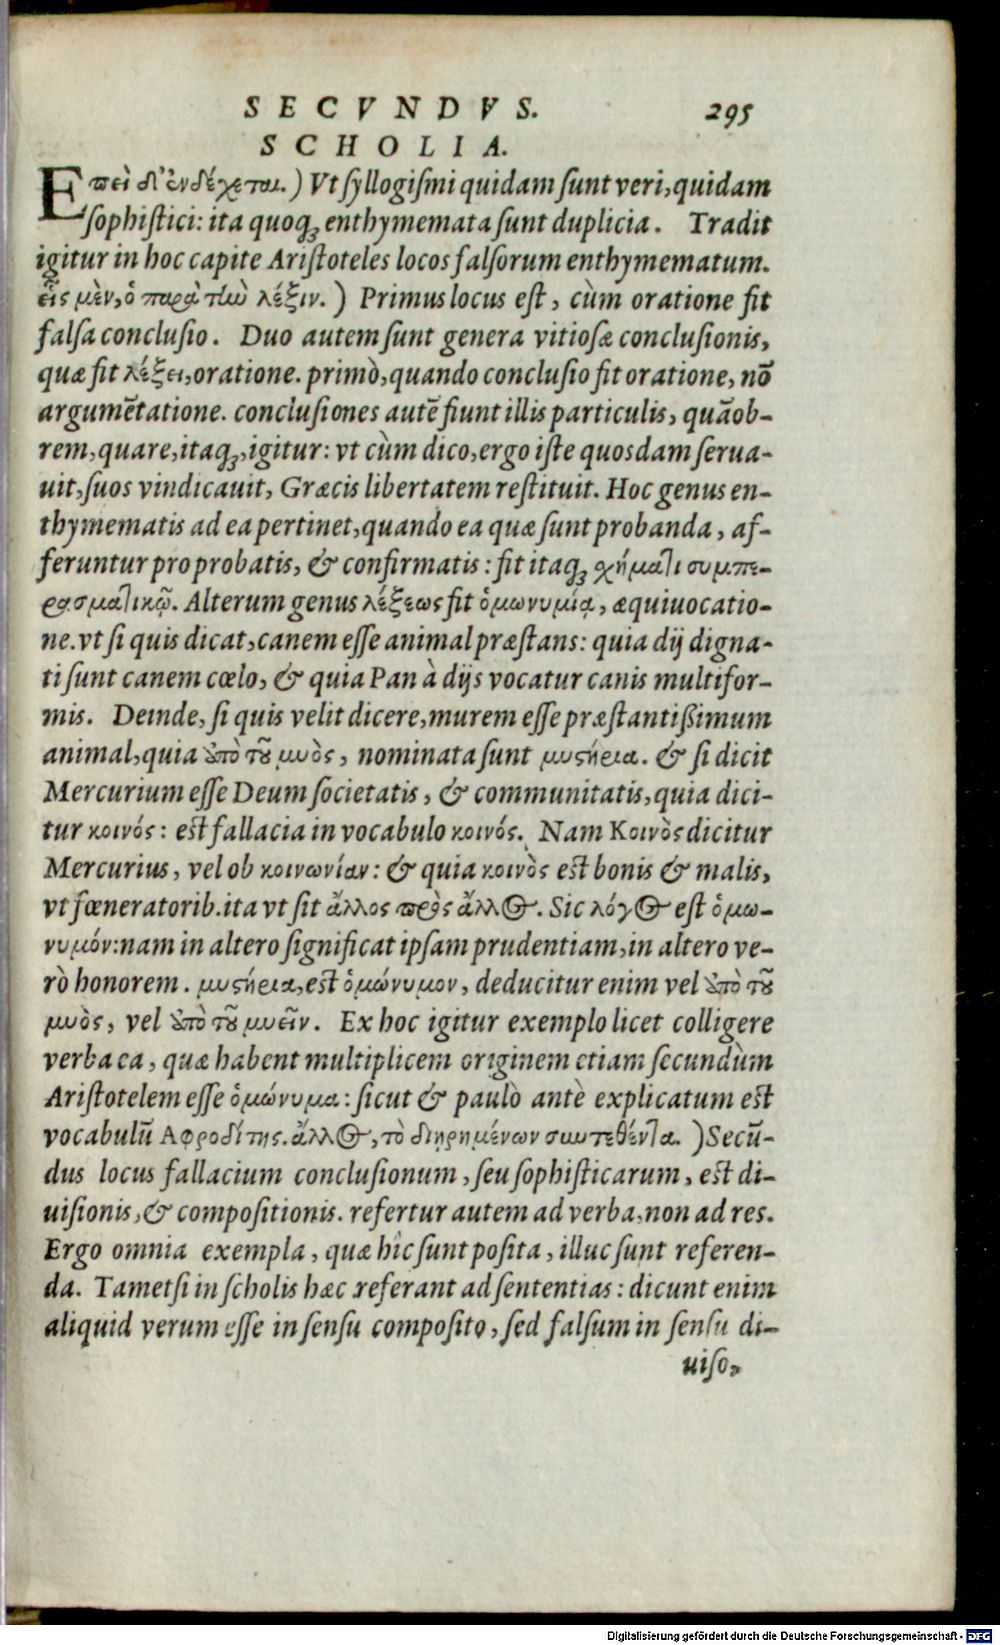 SECVNDVS. 295
SCHOLIA.
Επεὶ δ' ἐνδέχεται.) Vt syllogismi quidam sunt veri, quidam
sophistici: ita quoq; enthymemata sunt duplicia. Tradit
igitur in hoc capite Aristoteles locos falsorum enthymematum.
εἷς μὲν, ὁ παρὰ τὴν λέξιν.) Primus locus est, cùm oratione fit
falsa conclusio. Duo autem sunt genera vitiosæ conclusionis,
quæ fit λέξει, oratione. primò, quando conclusio fit oratione, nō
argumētatione. conclusiones autē fiunt illis particulis, quāob-
rem, quare, itaq;, igitur: vt cùm dico, ergo iste quosdam serua-
uit, suos vindicauit, Græcis libertatem restituit. Hoc genus en-
thymematis ad ea pertinet, quando ea quæ sunt probanda, af-
feruntur pro probatis, & confirmatis: fit itaq; χήματι συμπε-
ρασματικῷ. Alterum genus λέξεως fit ὁμωνυμίᾳ, æquiuocatio-
ne. vt si quis dicat, canem esse animal præstans: quia dij digna-
ti sunt canem cœlo, & quia Pan à dijs vocatur canis multifor-
mis. Deinde, si quis velit dicere, murem esse præstantißimum
animal, quia ὑπὸ τοῦ μυὸς, nominata sunt μυστήρια. & si dicit
Mercurium esse Deum societatis, & communitatis, quia dici-
tur κοινός: est fallacia in vocabulo κοινός. Nam Κοινὸς dicitur
Mercurius, vel ob κοινωνίαν: & quia κοινὸς est bonis & malis,
vt fœneratorib. ita vt sit ἄλλος πρὸς ἄλλος. Sic λόγος est ὁμω-
νυμόν: nam in altero significat ipsam prudentiam, in altero ve-
rò honorem. μυστήρια, est ὁμώνυμον, deducitur enim vel ὑπὸ τοῦ
μυὸς, vel ὑπὸ τοῦ μυεῖν. Ex hoc igitur exemplo licet colligere
verba ea, quæ habent multiplicem originem etiam secundùm
Aristotelem esse ὁμώνυμα: sicut & paulò antè explicatum est
vocabulū Αφροδίτης. ἄλλος, τὸ διῃρημένων συντεθέντα.) Secū-
dus locus fallacium conclusionum, seu sophisticarum, est di-
uisionis, & compositionis. refertur autem ad verba, non ad res.
Ergo omnia exempla, quæ hîc sunt posita, illuc sunt referen-
da. Tametsi in scholis hæc referant ad sententias: dicunt enim
aliquid verum esse in sensu composito, sed falsum in sensu di-
uiso,
Digitalisierung gefördert durch die Deutsche Forschungsgemeinschaft - DFG